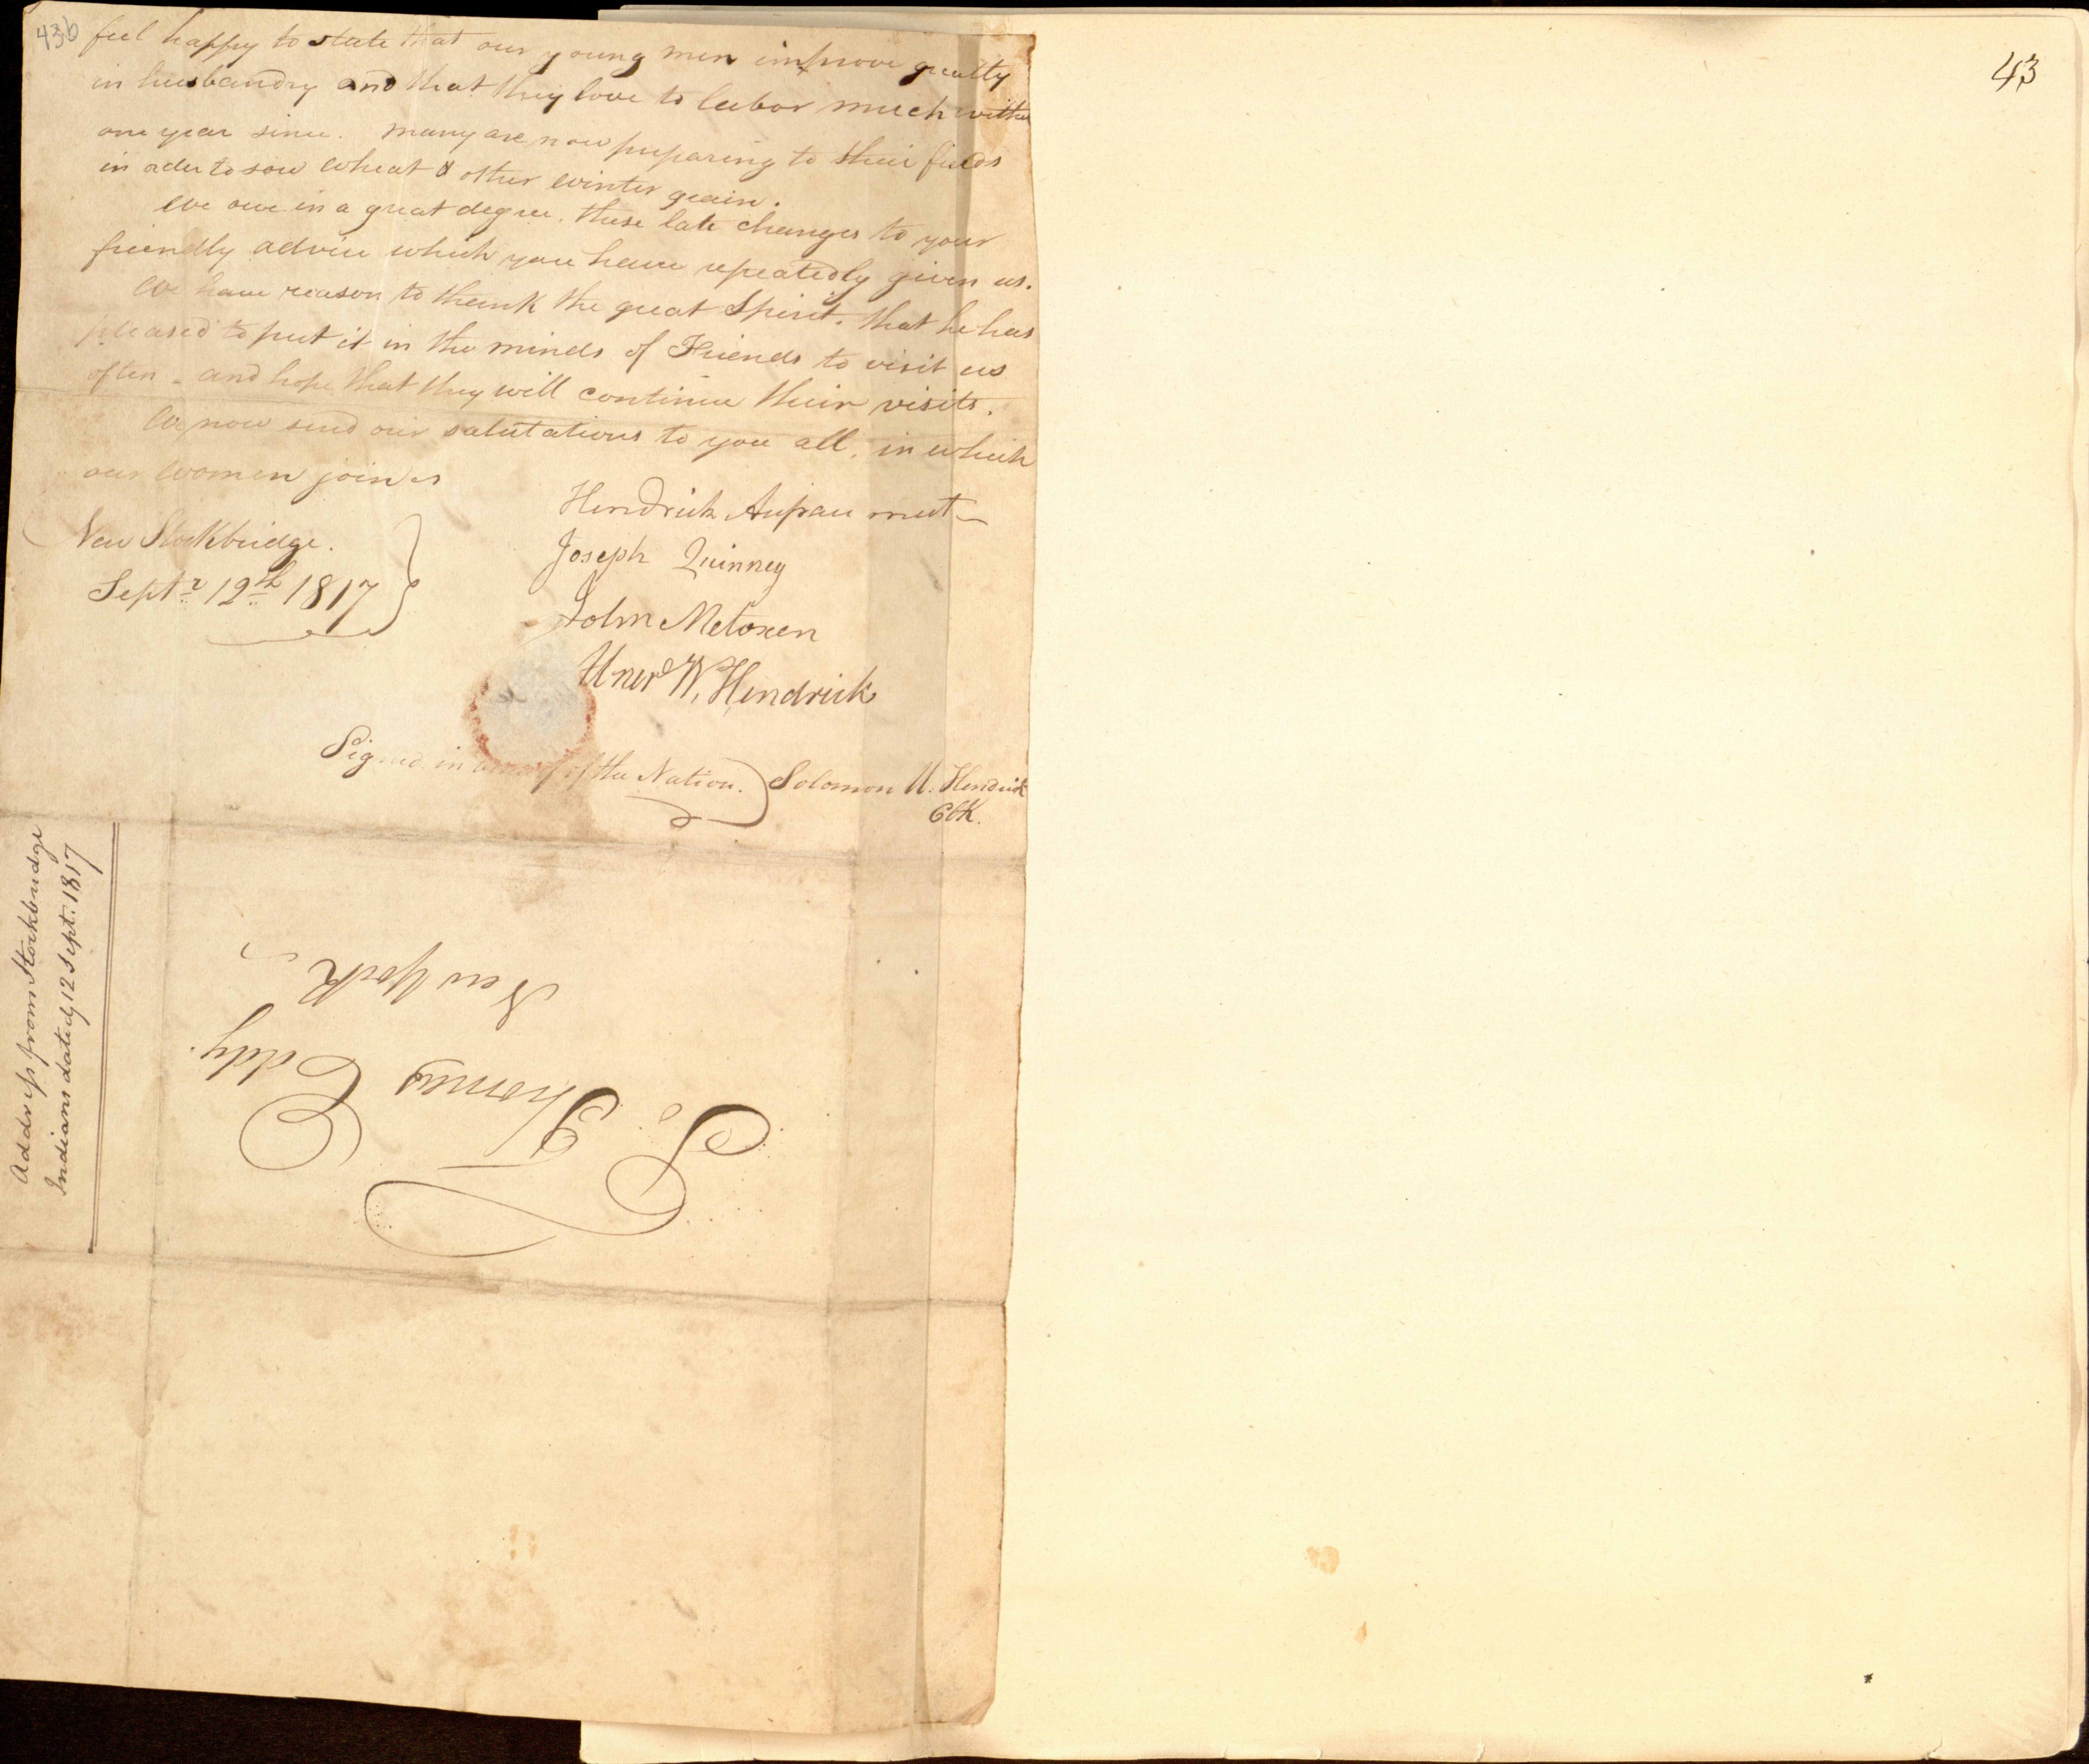 43b
feel happy to state that our young men improve greatly
in husbandry and that they love to labor much within
one year since. many are now preparing to their fields
in order to sow wheat & other winter grain.
We owe in a great degree, these late changes to your
friendly advice which you have repeatedly given us.
We have reason to thank the great Spirit. that he has
pleased to put it in the minds of Friends to visit us
often - and hope that they will continue their visits.
We now send our salutations to you all, in which
our women joines
Hendrick Aupaumut
New Stockbridge.
Septr 12th 1817
Joseph Quinney
John Metoxen
W. Hendrick
Signed in of the Nation. Solomon U. Hendrick
Clk.
Address from Stockbridge
Indians dated 12 Sept. 1817
To
Thomas Eddy.
New York
43